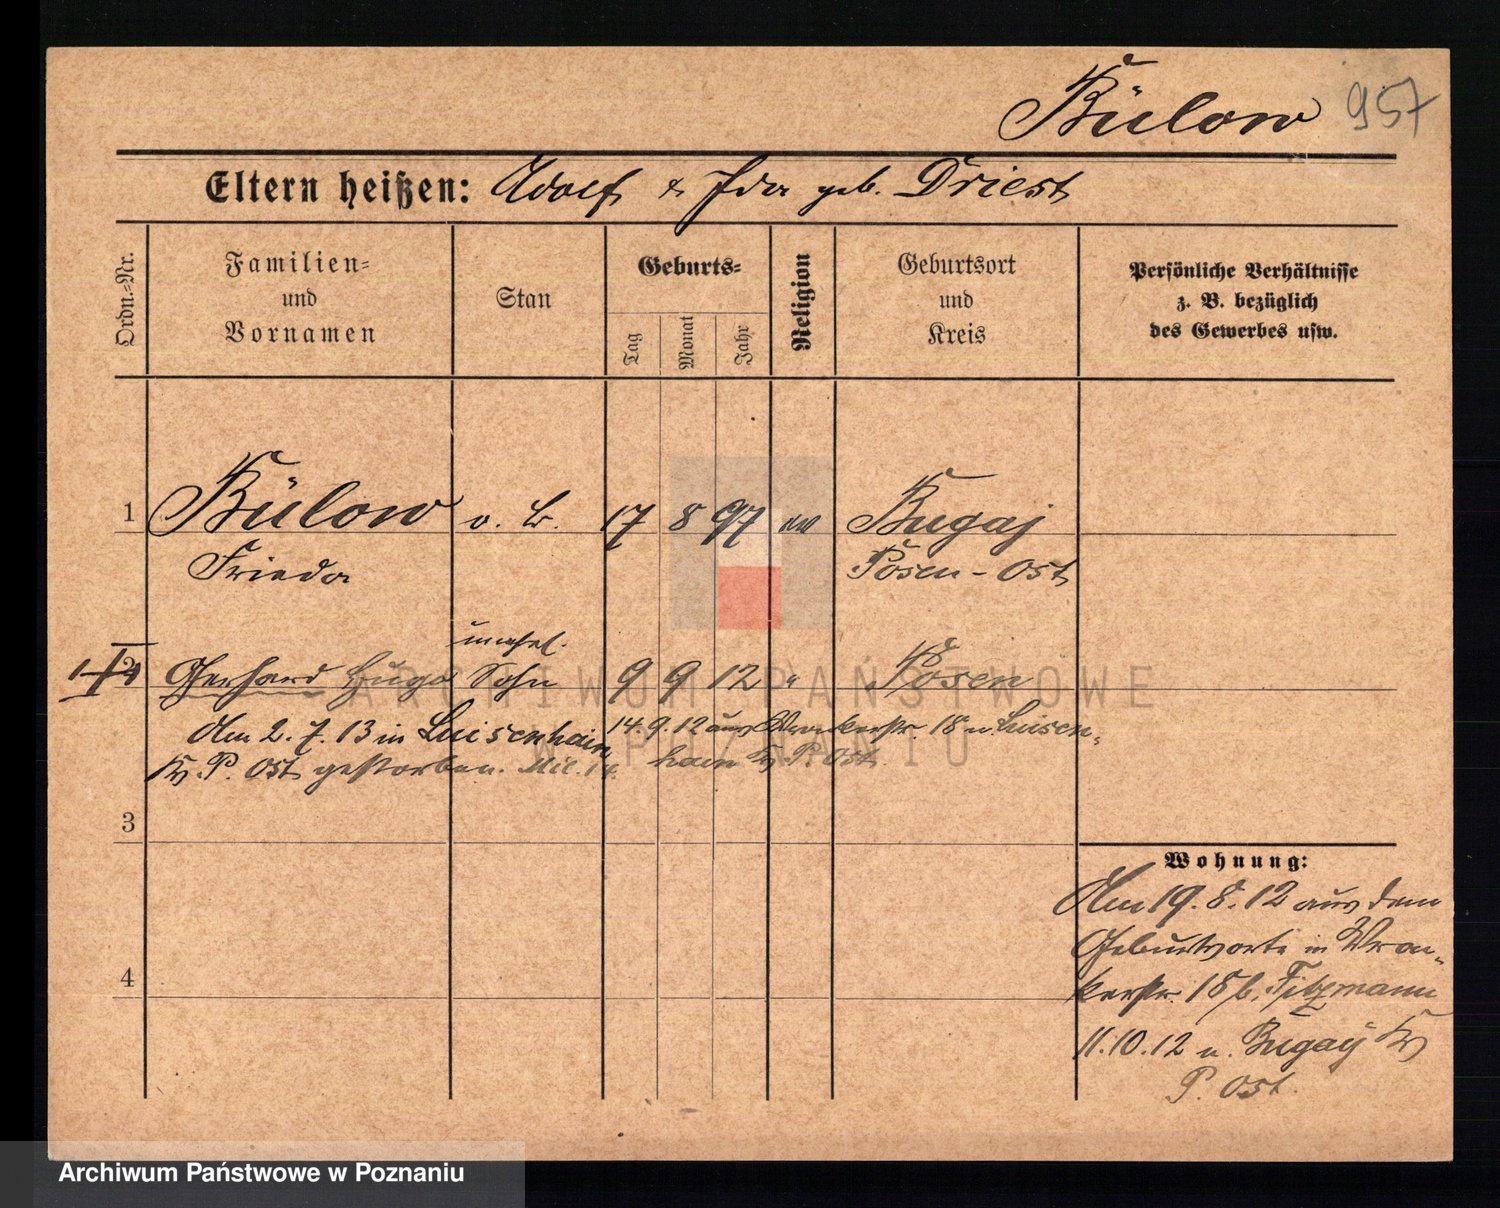 Bülow 957
Eltern heißen: Adolf & Ida geb. Driest
Ordn.-Nr.
Familien-
und
Vornamen
Stan
Geburts-
Tag
Monat
Jahr
Religion
Geburtsort
und
Kreis
Persönliche Verhältnisse
z. B. bezüglich
des Gewerbes usw.
1 Bülow o. B. 17 8 97 ev Bugaj
Frieda Posen-Ost
unehel.
2 Gerhard Hugo Sohn 9 9 12 " Posen
Am 2. 7. 13 in Luisenhain
Kr. P. Ost gestorben.
14. 9. 12 aus Wronkerstr. 18 n. Luisen-
hain Kr P. Ost
3
4
Wohnung:
Am 19. 8. 12 aus dem
Geburtsorte in Wron-
kerstr. 18 b. Fitzmann
11. 10. 12 n. Bugaj Kr
P. Ost.
ARCHIWUM PAŃSTWOWE
W POZNANIU
Archiwum Państwowe w Poznaniu